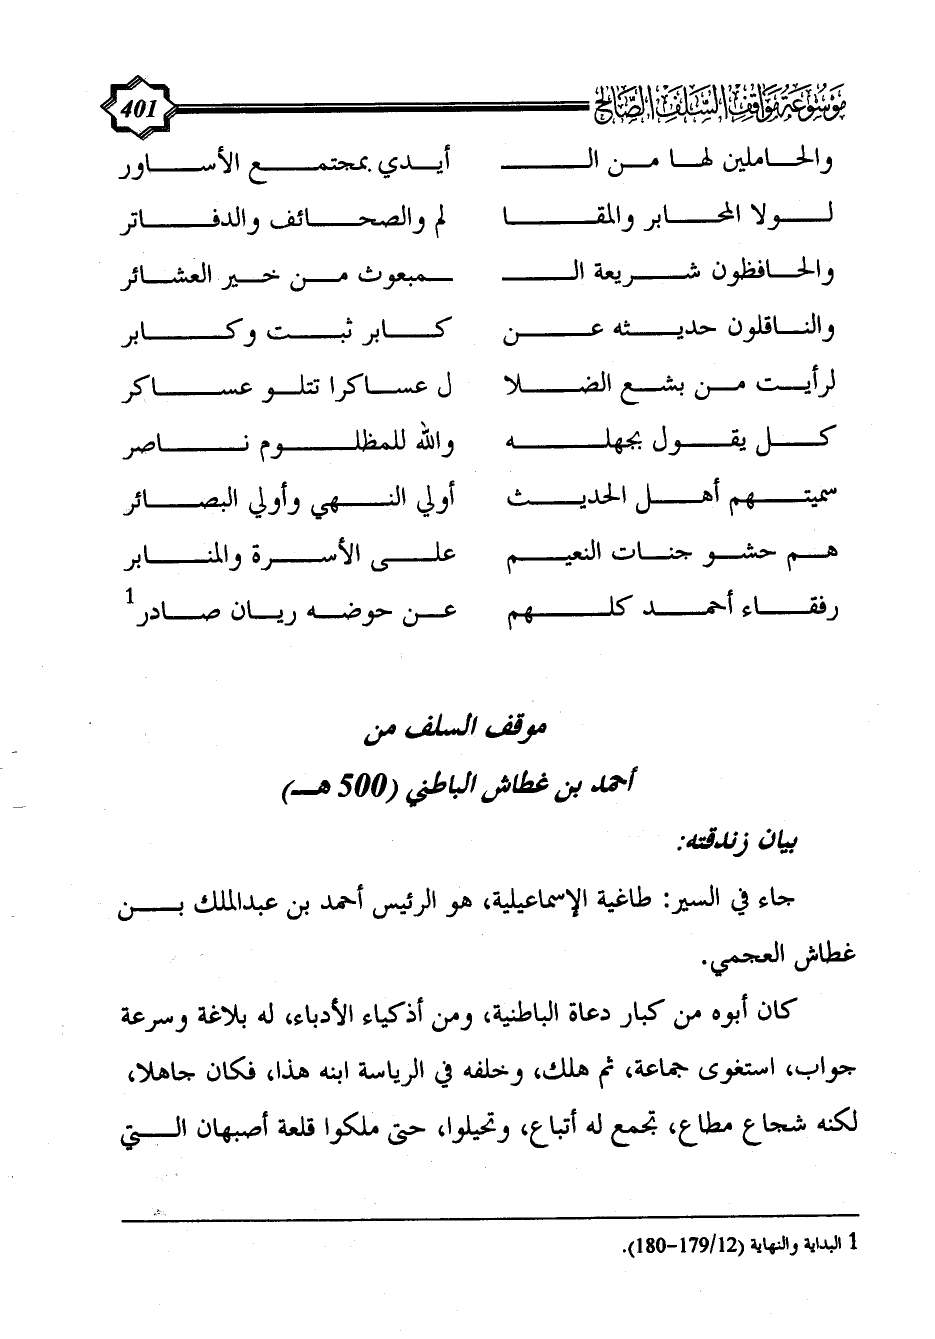 موسوعة مواقف السلف الصالح 401
والحاملين لها من الـ أيدي بمجتمع الأساور
لولا المحابر والمقا لم والصحائف والدفاتر
والحافظون شريعة الـ ـمبعوث من خير العشائر
والناقلون حديثه عن كابر ثبت وكابر
لرأيت من بشع الضلا ل عساكرا تتلو عساكر
كل يقول بجهله والله للمظلوم ناصر
سميتهم أهل الحديث أولي النهي وأولي البصائر
هم حشو جنات النعيم على الأسرة والمنابر
رفقاء أحمد كلهم عن حوضه ريان صادر1
موقف السلف من
أحمد بن غطاش الباطني (500 هـ)
بيان زندقته:
جاء في السير: طاغية الإسماعيلية، هو الرئيس أحمد بن عبدالملك بن
غطاش العجمي.
كان أبوه من كبار دعاة الباطنية، ومن أذكياء الأدباء، له بلاغة وسرعة
جواب، استغوى جماعة، ثم هلك، وخلفه في الرياسة ابنه هذا، فكان جاهلا،
لكنه شجاع مطاع، تجمع له أتباع، وتحيلوا، حتى ملكوا قلعة أصبهان التي
1 البداية والنهاية (179/12-180).